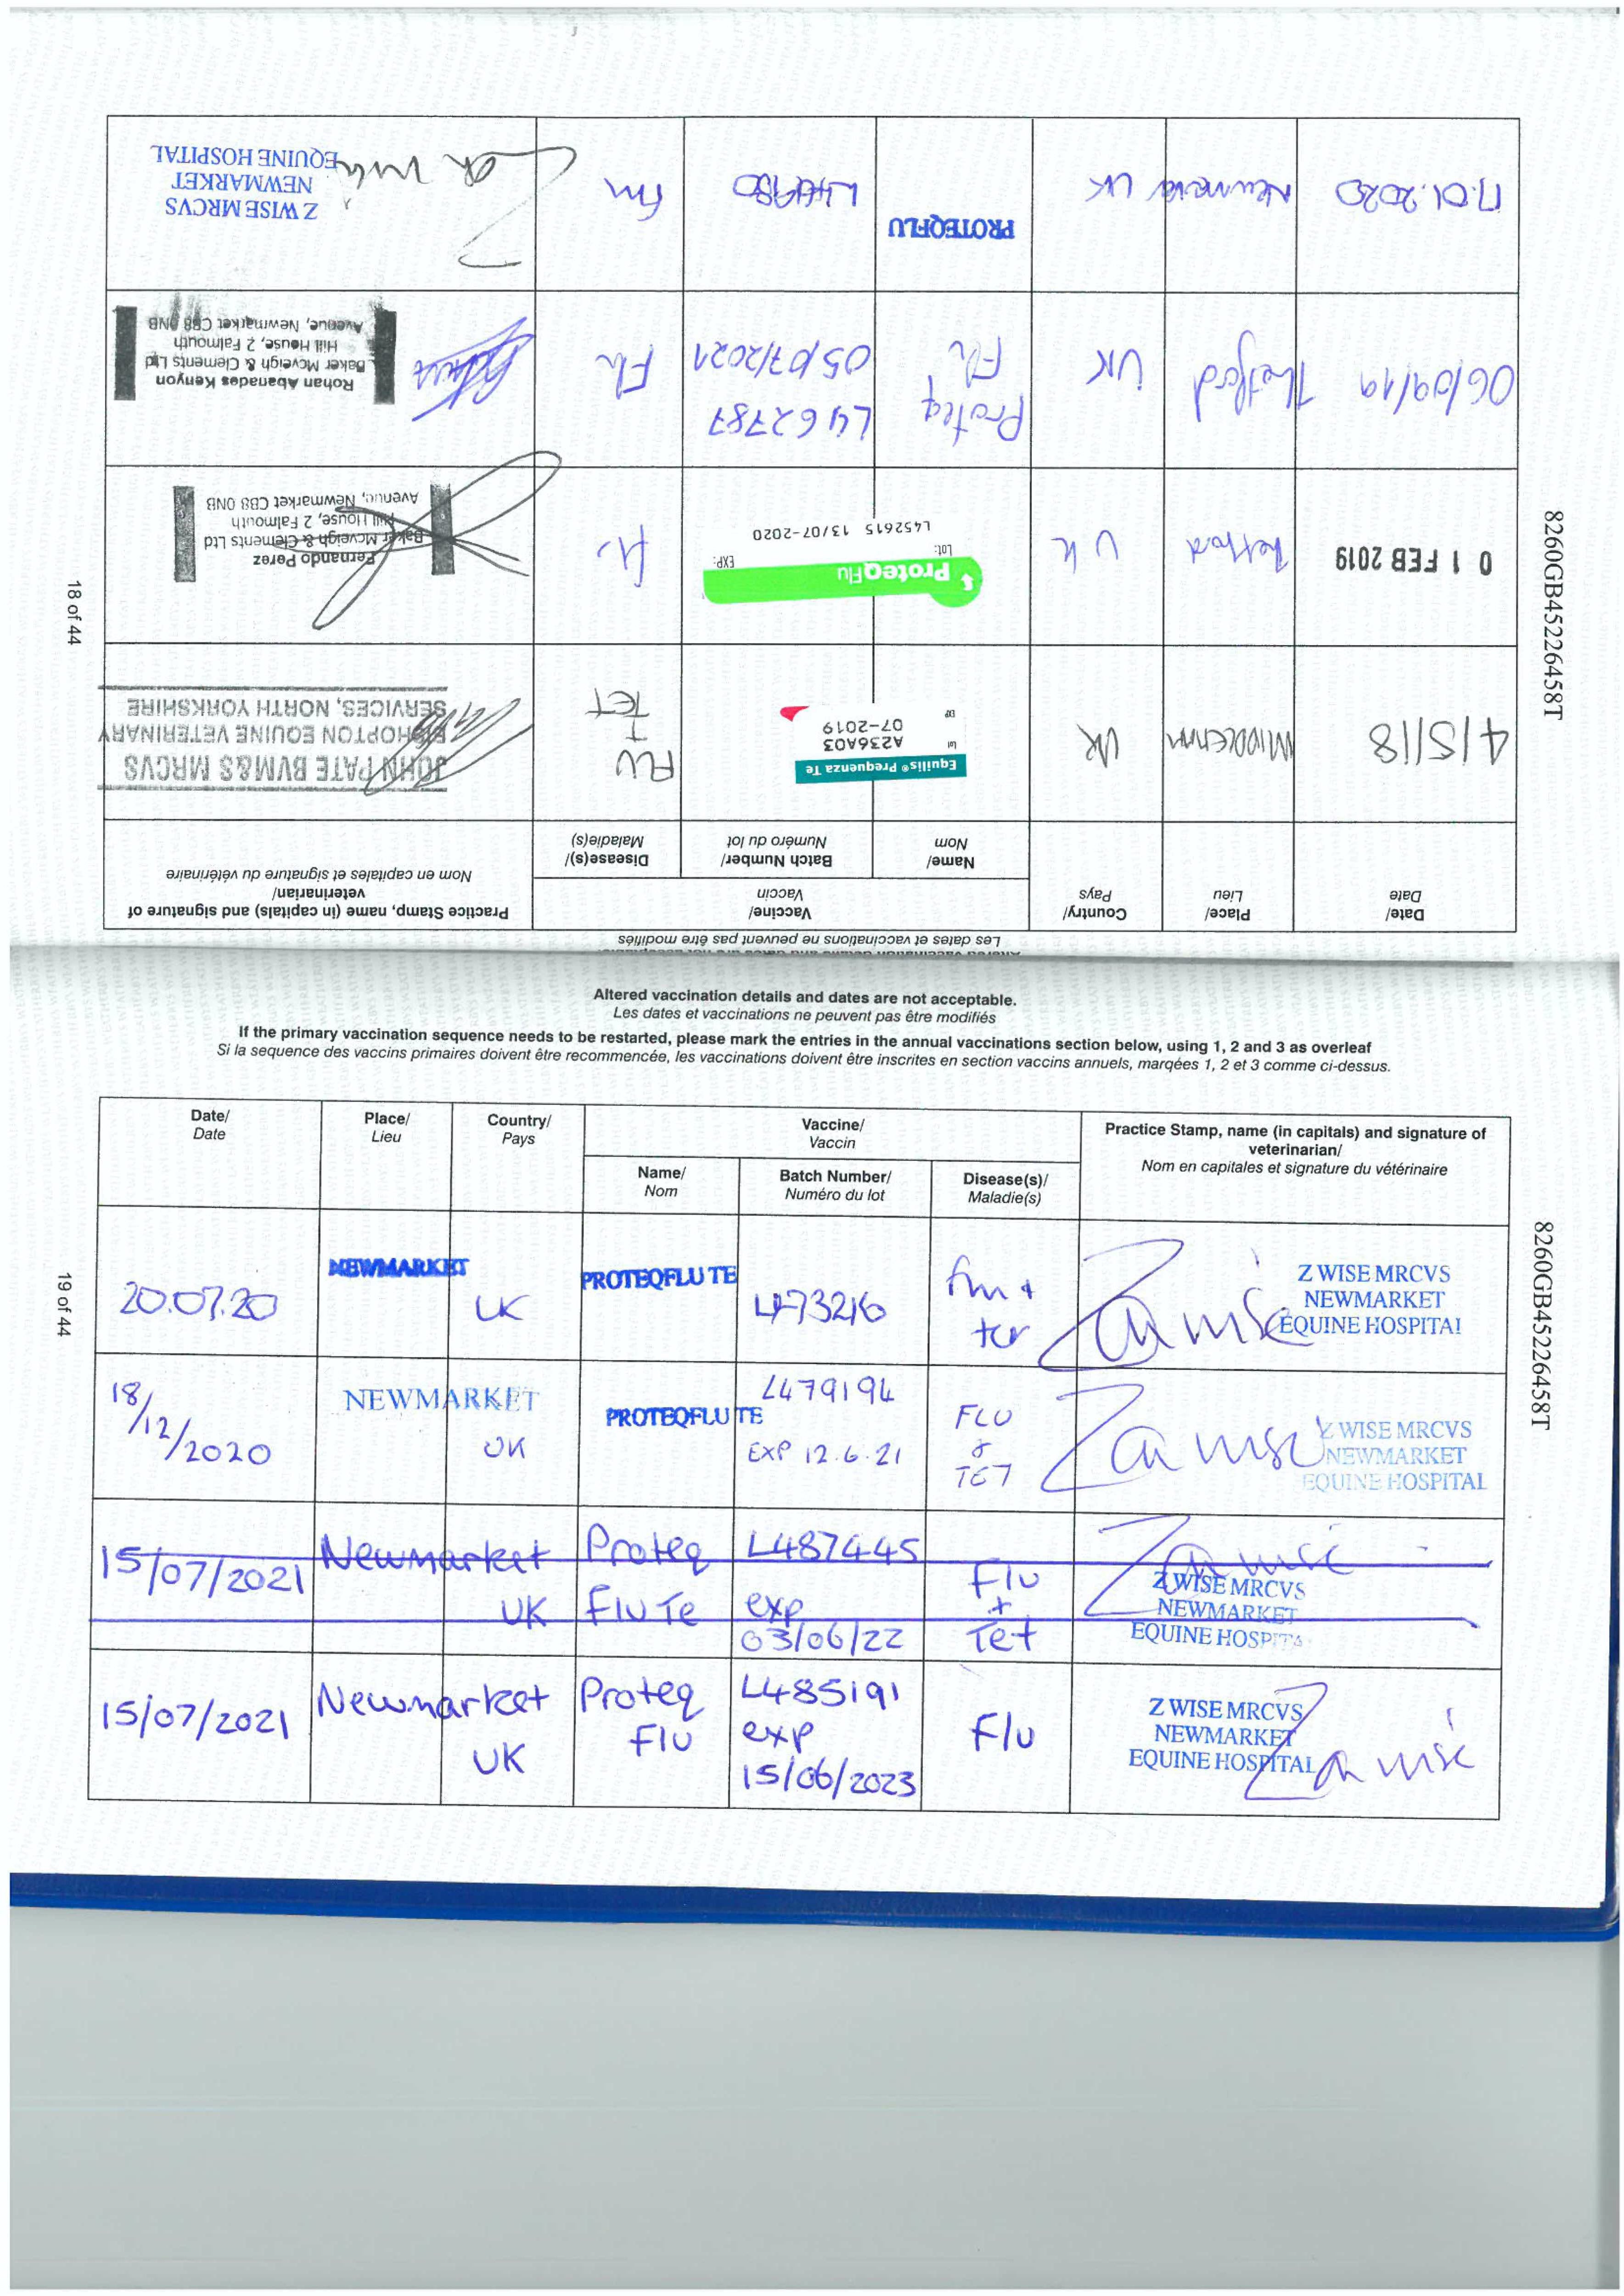 Altered vaccination details and dates are not acceptable.
Les dates et vaccinations ne peuvent pas être modifiés
Date/
Date
Place/
Lieu
Country/
Pays
Vaccine/
Vaccin
Name/
Nom
Batch Number/
Numéro du lot
Disease(s)/
Maladie(s)
Practice Stamp, name (in capitals) and signature of
veterinarian/
Nom en capitales et signature du vétérinaire
4/5/18
MIDDLEHAM
UK
Equilis® Prequenza Te
Lot
A236A03
EXP
07-2019
FLU
+
TET
JOHN PATE BVM&S MRCVS
HOPTON EQUINE VETERINARY
SERVICES, NORTH YORKSHIRE
0 1 FEB 2019
UK
ProteqFlu
Lot:
EXP:
L452615 13/07-2020
Fernando Perez
Baker Mcveigh & Clements Ltd
Hill House, 2 Falmouth
Avenue, Newmarket CB8 0NB
06/09/19
Thetford
UK
Proteq
Flu
L462787
05/07/2021
Flu
Rohan Abanades Kenyon
Baker Mcveigh & Clements Ltd
Hill House, 2 Falmouth
Avenue, Newmarket CB8 0NB
17.01.2020
Newmarket
UK
PROTEQFLU
Z WISE MRCVS
NEWMARKET
EQUINE HOSPITAL
18 of 44
8260GB45226458T
Altered vaccination details and dates are not acceptable.
Les dates et vaccinations ne peuvent pas être modifiés
If the primary vaccination sequence needs to be restarted, please mark the entries in the annual vaccinations section below, using 1, 2 and 3 as overleaf
Si la sequence des vaccins primaires doivent être recommencée, les vaccinations doivent être inscrites en section vaccins annuels, marqées 1, 2 et 3 comme ci-dessus.
Date/
Date
Place/
Lieu
Country/
Pays
Vaccine/
Vaccin
Name/
Nom
Batch Number/
Numéro du lot
Disease(s)/
Maladie(s)
Practice Stamp, name (in capitals) and signature of
veterinarian/
Nom en capitales et signature du vétérinaire
20.07.20
NEWMARKET
UK
PROTEQFLU TE
L473216
Z WISE MRCVS
NEWMARKET
EQUINE HOSPITAL
18/12/2020
NEWMARKET
UK
PROTEQFLU TE
L479194
EXP 12.6.21
FLU
&
TET
Z WISE MRCVS
NEWMARKET
EQUINE HOSPITAL
15/07/2021
Newmarket
UK
Proteq
Flu Te
L487445
exp
03/06/22
Flu
+
Tet
Z WISE MRCVS
NEWMARKET
EQUINE HOSPITA
15/07/2021
Newmarket
UK
Proteq
Flu
L485191
exp
15/06/2023
Flu
Z WISE MRCVS
NEWMARKET
EQUINE HOSPITAL
19 of 44
8260GB45226458T